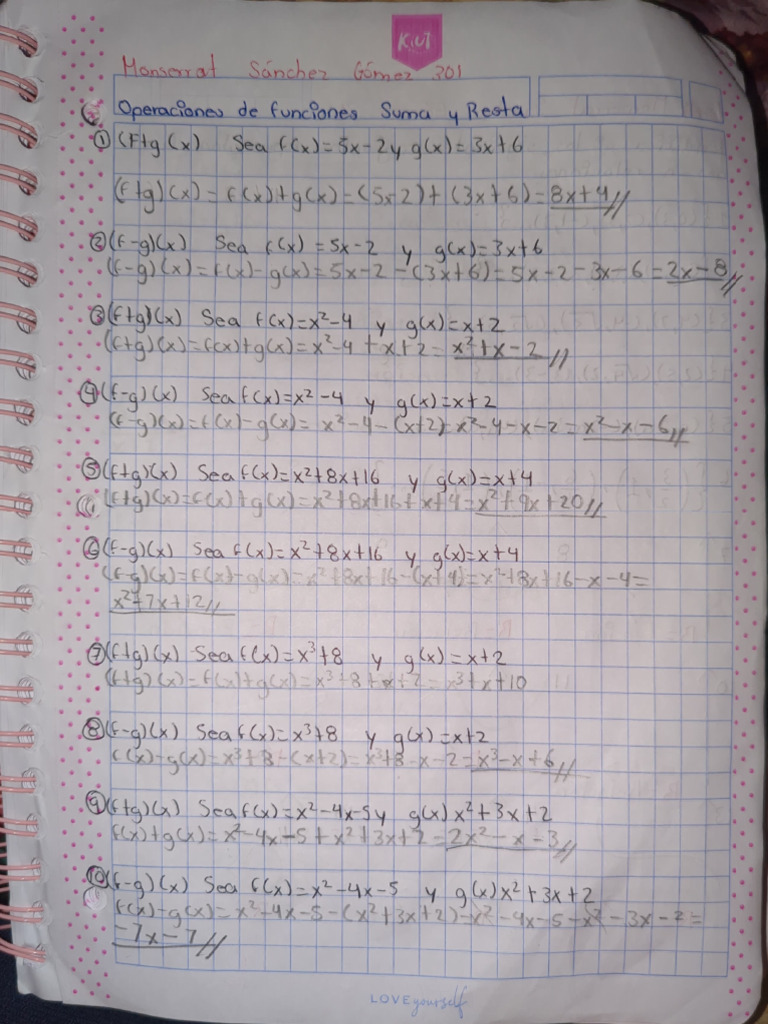 KIUT
Monserrat Sánchez Gómez 301
Operaciones de funciones Suma y Resta
① (F+g(x) Sea f(x)=5x-2 y g(x)=3x+6
(f+g)(x)=f(x)+g(x)=(5x-2)+(3x+6)=8x+4//
② (f-g)(x) Sea f(x)=5x-2 y g(x)=3x+6
(f-g)(x)=f(x)-g(x)=5x-2-(3x+6)=5x-2-3x-6=2x-8//
③ (f+g)(x) Sea f(x)=x²-4 y g(x)=x+2
(f+g)(x)=f(x)+g(x)=x²-4+x+2=x²+x-2//
④ (f-g)(x) Sea f(x)=x²-4 y g(x)=x+2
(f-g)(x)=f(x)-g(x)=x²-4-(x+2)=x²-4-x-2=x²-x-6//
⑤ (f+g)(x) Sea f(x)=x²+8x+16 y g(x)=x+4
(f+g)(x)=f(x)+g(x)=x²+8x+16+x+4=x²+9x+20//
⑥ (f-g)(x) Sea f(x)=x²+8x+16 y g(x)=x+4
(f-g)(x)=f(x)-g(x)=x²+8x+16-(x+4)=x²+8x+16-x-4=
x²+7x+12//
⑦ (f+g)(x) Sea f(x)=x³+8 y g(x)=x+2
(f+g)(x)=f(x)+g(x)=x³+8+x+2=x³+x+10
⑧ (f-g)(x) Sea f(x)=x³+8 y g(x)=x+2
f(x)-g(x)=x³+8-(x+2)=x³+8-x-2=x³-x+6//
⑨ (f+g)(x) Sea f(x)=x²-4x-5 y g(x) x²+3x+2
f(x)+g(x)=x²-4x-5+x²+3x+2=2x²-x-3//
⑩ (f-g)(x) Sea f(x)=x²-4x-5 y g(x) x²+3x+2
f(x)-g(x)=x²-4x-5-(x²+3x+2)=x²-4x-5-x²-3x-2=
-7x-7//
LOVE yourself